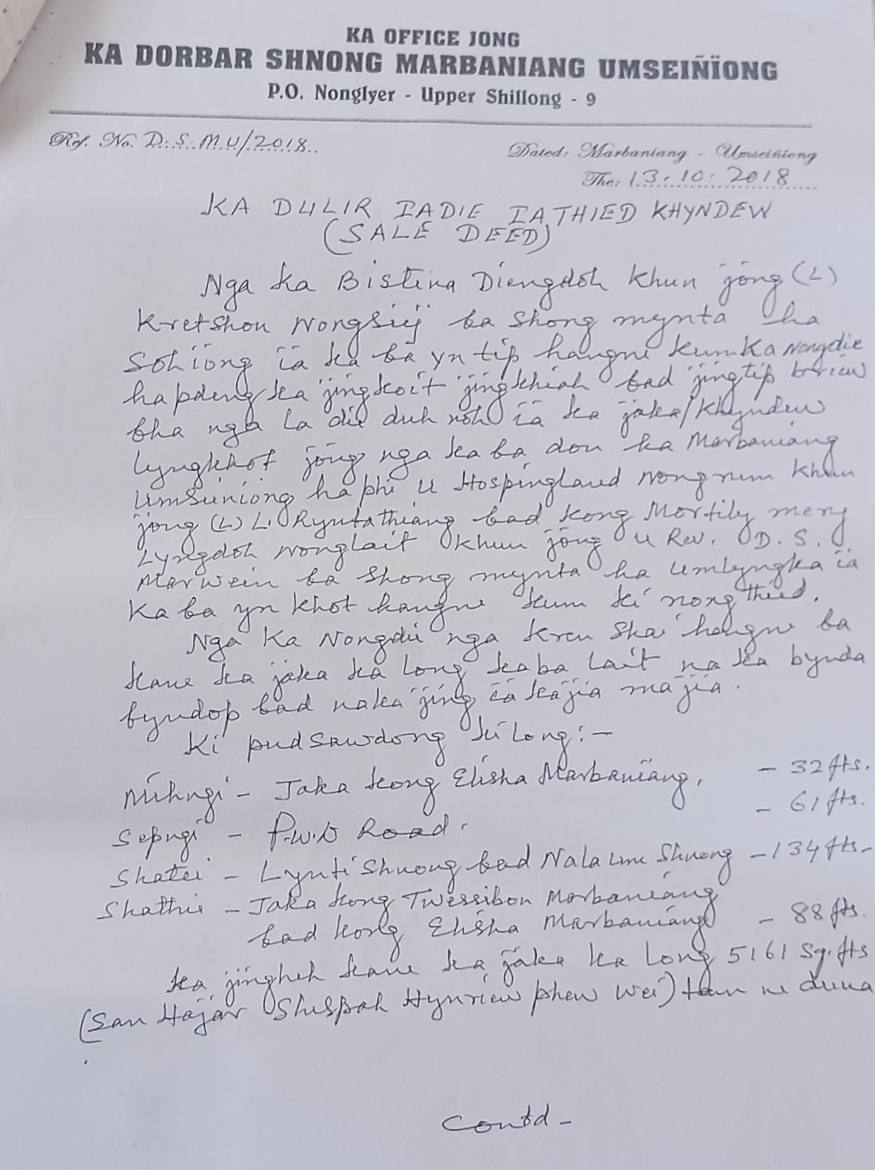 KA OFFICE JONG
KA DORBAR SHNONG MARBANIANG UMSEIÑÏONG
P.O. Nonglyer - Upper Shillong - 9
Ref. No. D.S.M.U/2018..
Dated: Marbaniang - Umseiñiong
The: 13-10-2018
KA DULIR IADIE IATHIED KHYNDEW
(SALE DEED)
Nga Ka Bistina Diengdoh Khun jong (L)
Kretshon Nongsiej ba shong mynta ha
Sohiong ïa ka ba yn tip hangne kum Ka Nongdie
hapdeng ka jingkoit jingkhiah bad jingtip briew
bha nga la die duh noh ïa ka jaka/Khyndew
Lyngkhot jong nga ka ba don ha Marbaniang
Umseiniong ha phi u Hospingland Nongrum Khun
jong (L) L. Ryntathiang bad Kong Mortily mery
Lyngdoh Nonglait Khun jong u Rev. D.S.
Marwein ba shong mynta ha Umlyngka ïa
Ka ba yn khot hangne kum ki nongthied.
Nga Ka Nongdie nga kren sha hangne ba
kane ka jaka ka long kaba lait na ka bynda
byndop bad naka jing ïa kajia majia.
Ki pud sawdong ki long:-
Mihngi - Jaka kong Elisha Marbaniang. - 32 fts.
Sepngi - P.W.D Road. - 61 fts.
Shatei - Lynti Shnong bad Nala um Shnong - 134 fts-
Shathie - Jaka kong Twessibon Marbaniang
bad kong Elisha Marbaniang - 88 fts.
ka jingheh kane ka jaka ka long 5161 Sq.fts
(San Hajar Shispah Hynriew phew wei) tam ne duna
Contd-